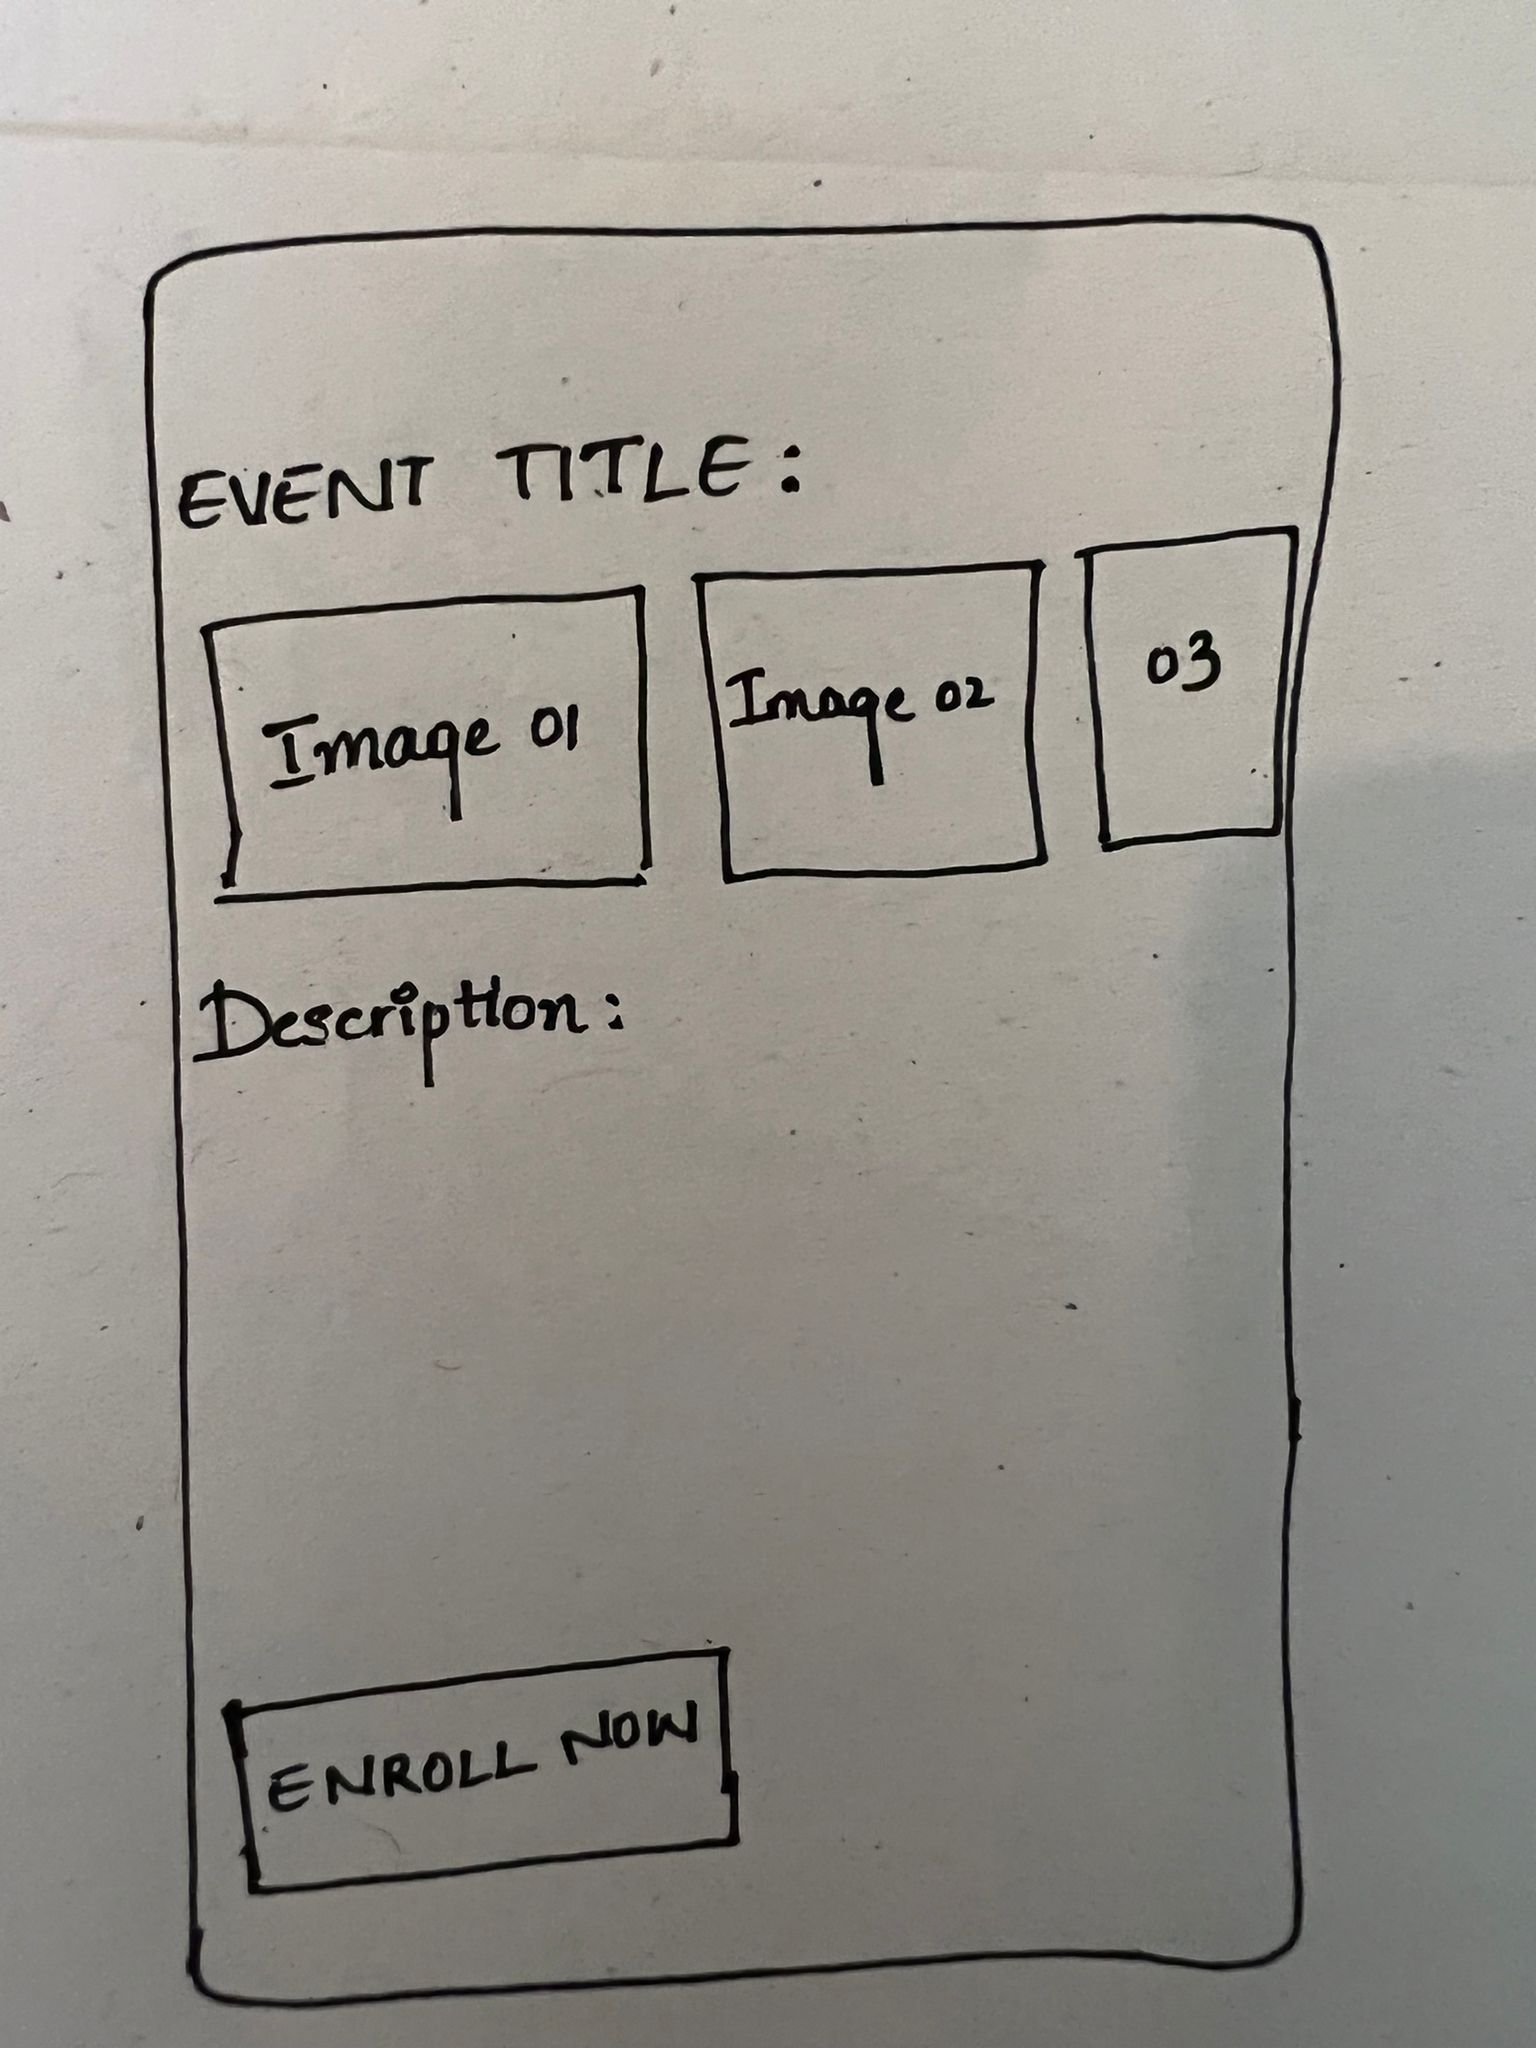 EVENT TITLE:
Image 01 Image 02 03
Description:
ENROLL NOW